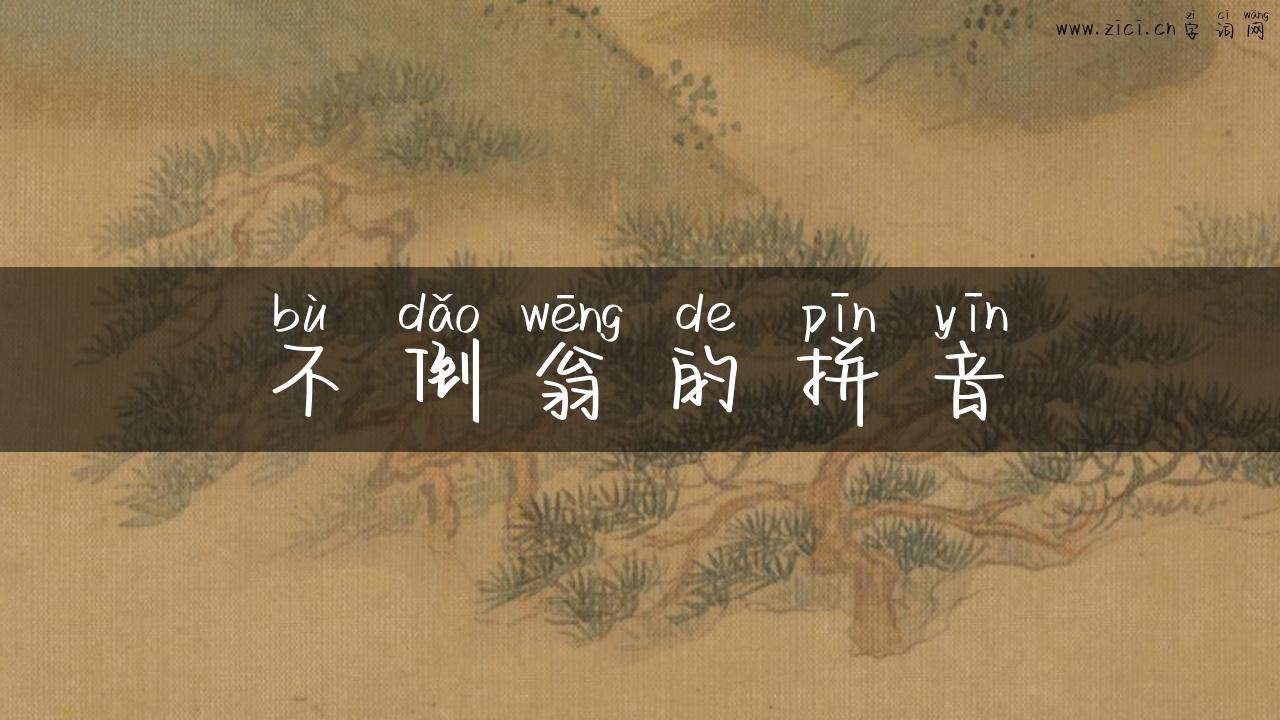 zì cí wǎng
www.zici.cn 字 词 网
bù dǎo wēng de pīn yīn
不 倒 翁 的 拼 音